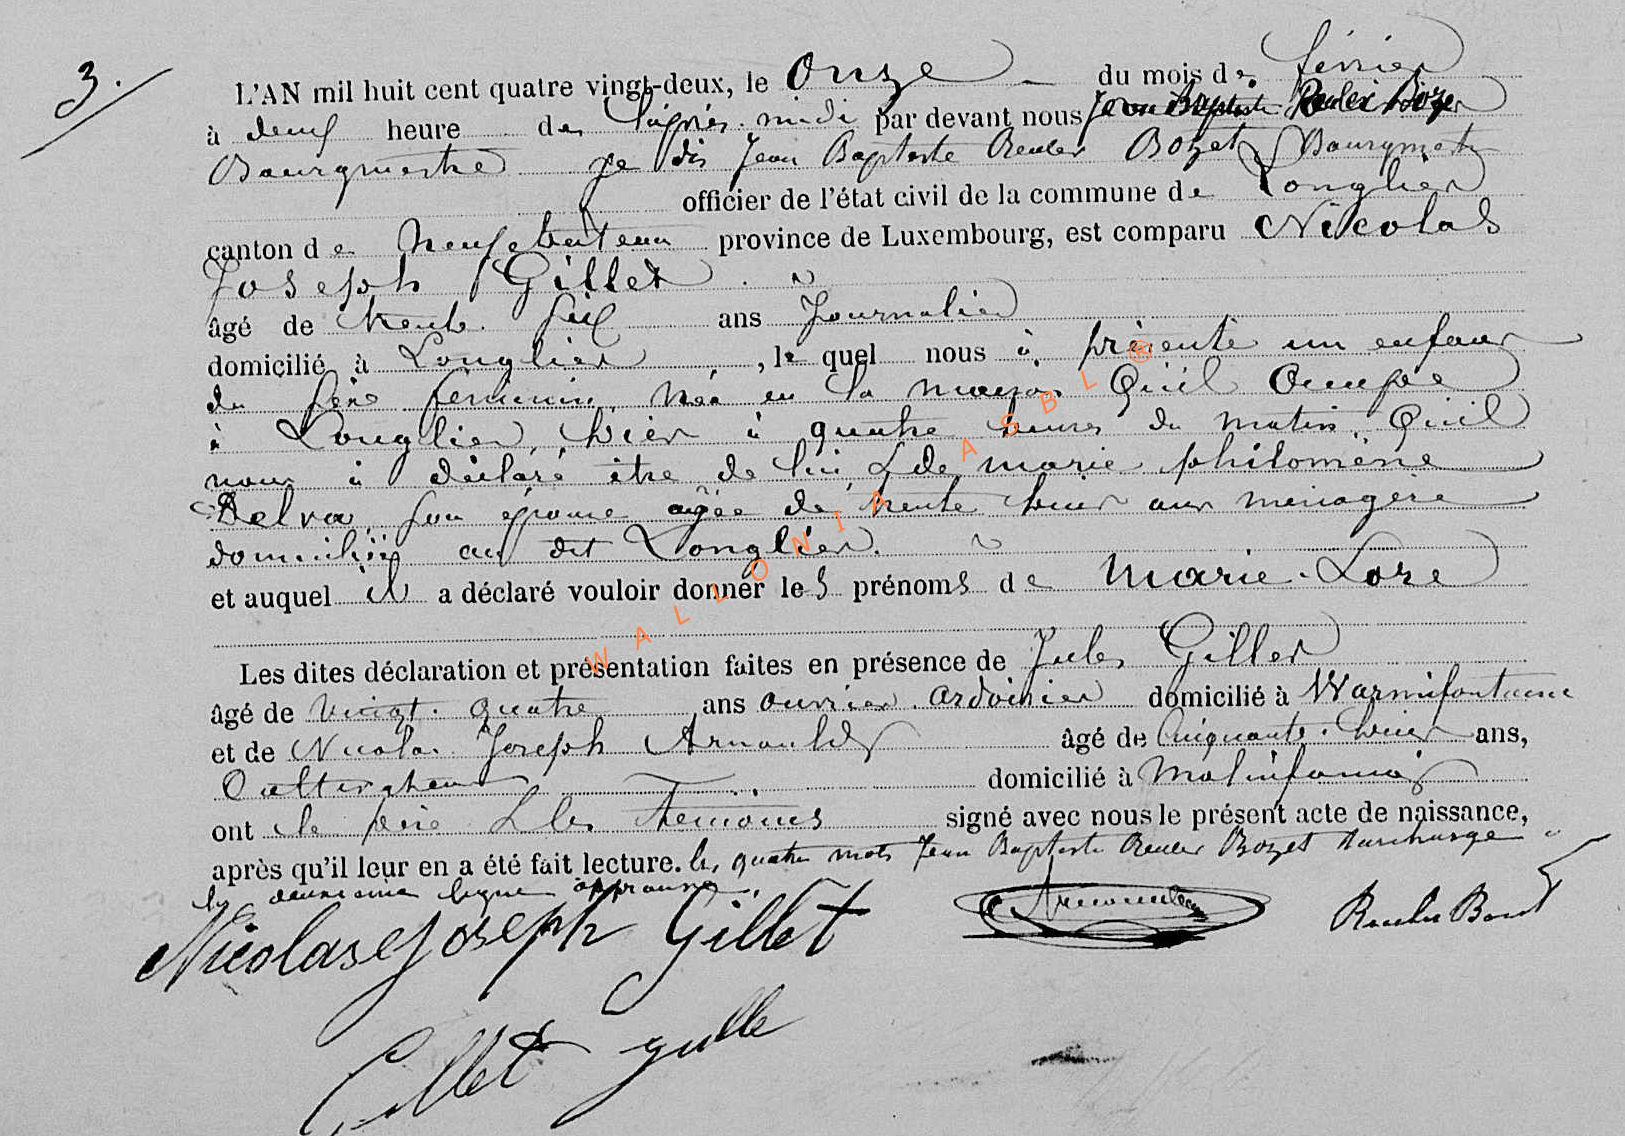 3.
L'AN mil huit cent quatre vingt-deux, le Onze du mois de février
à deux heure des l'après midi par devant nous Jean Baptiste Reuler Bozet
Bourgmestre je dis Jean Baptiste Reuler Bozet Bourgmestre
officier de l'état civil de la commune de Longlier
canton de Neufchateau province de Luxembourg, est comparu Nicolas
Joseph Gillet
âgé de trente six ans Journalier
domicilié à Longlier, le quel nous à présenté un enfant
du sexe féminin, née en la maison Qu'il Occupe
à Longlier, hier à quatre heures du matin Qu'il
nous à déclaré être de lui & de marie philomène
Delva son épouse agée de trente huit ans ménagère
domiciliée au dit Longlier.
et auquel il a déclaré vouloir donner les prénoms de Marie-Lore
Les dites déclaration et présentation faites en présence de Jules Gillet
âgé de vingt-quatre ans ouvrier ardoisier domicilié à Warmifontaine
et de Nicolas Joseph Arnould âgé de Cinquante-huit ans,
Cultivateur domicilié à Molinfaing
ont le père & les Témoins signé avec nous le présent acte de naissance,
après qu'il leur en a été fait lecture. les quatre mots Jean Baptiste Reuler Bozet surchargé
deuxième ligne approuvé.
Nicolas Joseph Gillet
Arnould
Reuler Bozet
Gillet Jule
WALLONIA ASBL ®